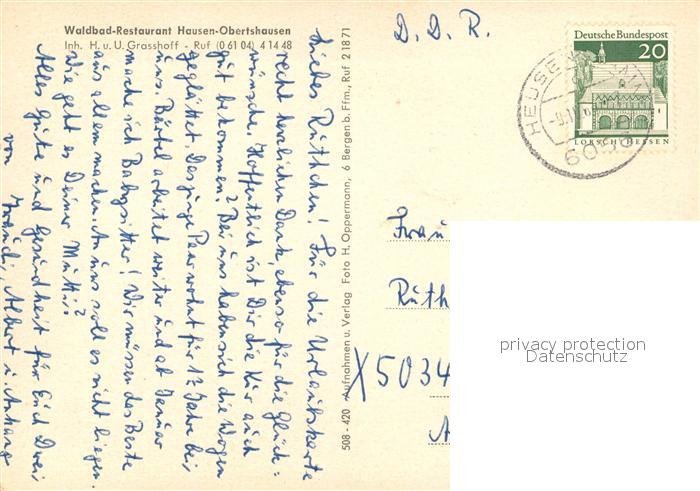 Waldbad-Restaurant Hausen-Obertshausen
Inh. H. u. U. Grasshoff - Ruf (0 61 04) 4 14 48
Liebes Ruthchen! Für die Urlaubskarte
recht herzlichen Dank, ebenso für die Glück-
wünsche. Hoffentlich ist Dir die Kur auch
gut bekommen? Bei uns haben sich die Wogen
geglättet. Das junge Paar wohnt für 1½ Jahre bei
uns. Bärbel arbeitet weiter und ab Januar
mache ich Babysitter! Wir müssen das Beste
aus allem machen. An uns soll es nicht liegen.
Wie geht es Deiner Mutti?
Alles Gute und Gesundheit für Euch Zwei
von
Albert u. Anhang
508 - 420 Aufnahmen u. Verlag Foto H. Oppermann, 6 Bergen b. Ffm., Ruf 2 18 71
D. D. R.
Deutsche Bundespost
20
LORSCH/HESSEN
HEUSENSTAMM
6056
Frau
Ruth
X5034
privacy protection
Datenschutz